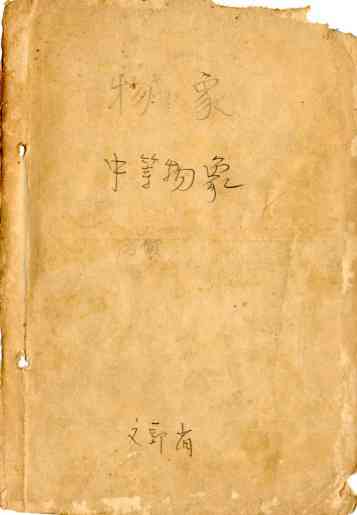 物象
中等物象
文部省